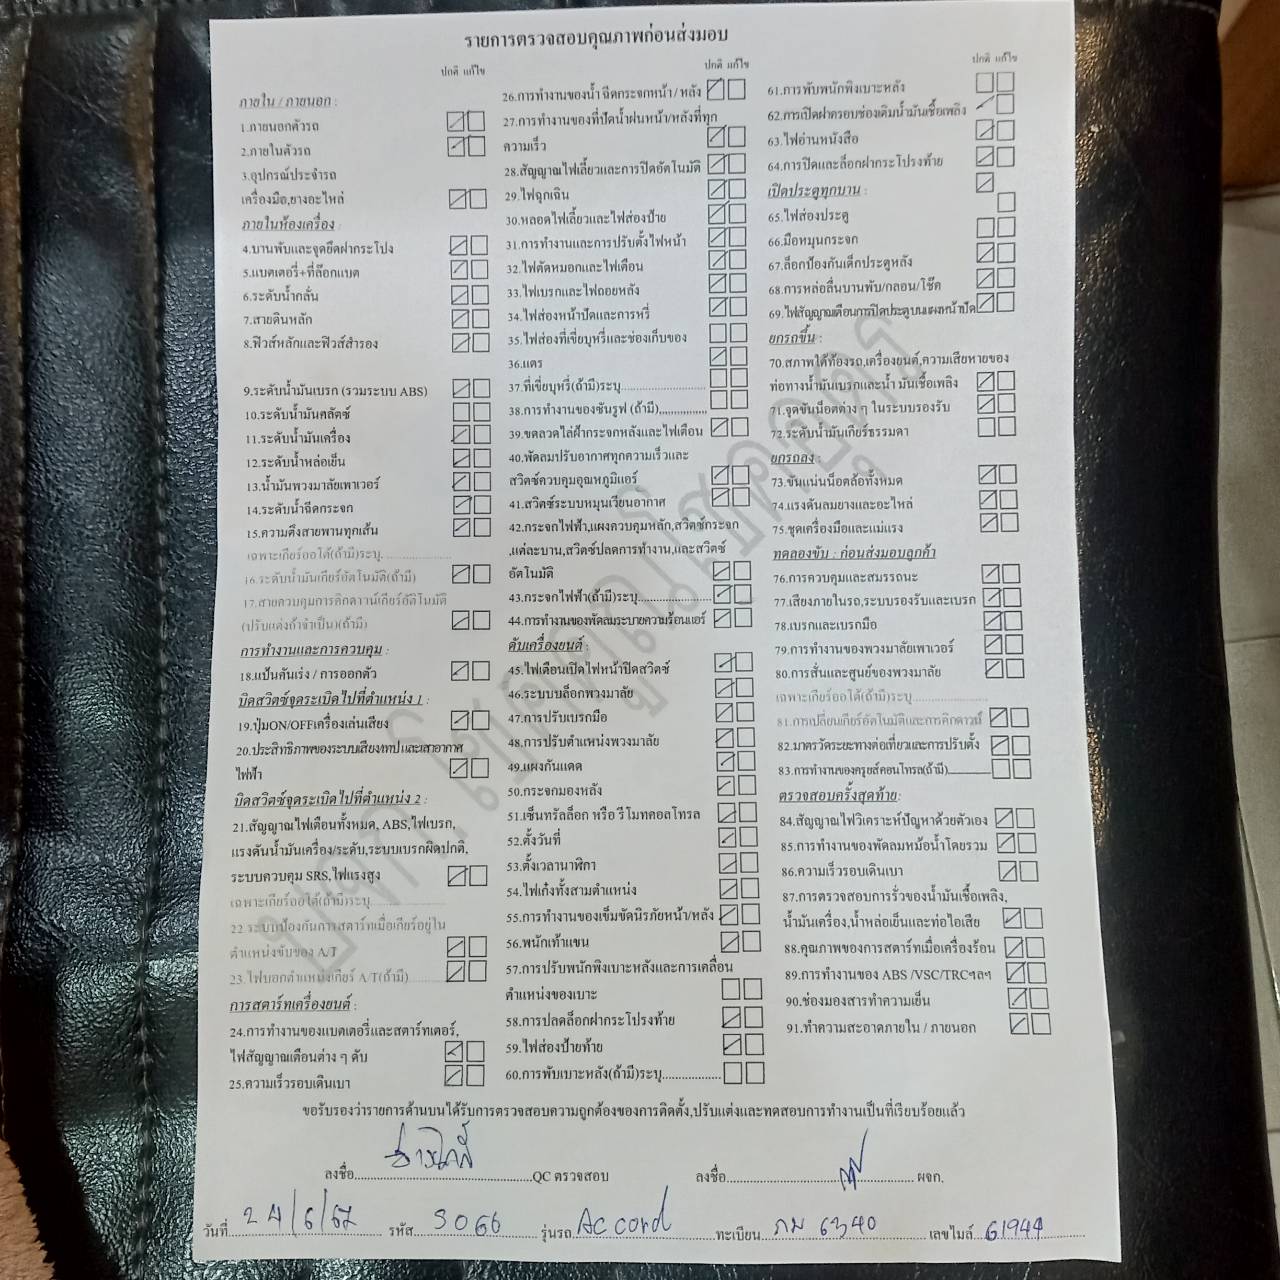 รายการตรวจสอบคุณภาพก่อนส่งมอบ
ปกติ แก้ไข
ภายใน / ภายนอก :
1.ภายนอกตัวรถ
2.ภายในตัวรถ
3.อุปกรณ์ประจำรถ
เครื่องมือ,ยางอะไหล่
ภายในห้องเครื่อง :
4.บานพับและจุดยึดฝากระโปง
5.แบตเตอรี่+ที่ล๊อกแบต
6.ระดับน้ำกลั่น
7.สายดินหลัก
8.ฟิวส์หลักและฟิวส์สำรอง
9.ระดับน้ำมันเบรก (รวมระบบ ABS)
10.ระดับน้ำมันคลัตซ์
11.ระดับน้ำมันเครื่อง
12.ระดับน้ำหล่อเย็น
13.น้ำมันพวงมาลัยเพาเวอร์
14.ระดับน้ำฉีดกระจก
15.ความตึงสายพานทุกเส้น
เฉพาะเกียร์ออโต้(ถ้ามี)ระบุ.................
16.ระดับน้ำมันเกียร์อัตโนมัติ(ถ้ามี)
17.สายควบคุมการคิกดาวน์เกียร์อัตโนมัติ
(ปรับแต่งถ้าจำเป็น)(ถ้ามี)
การทำงานและการควบคุม :
18.แป้นคันเร่ง / การออกตัว
บิดสวิตซ์จุดระเบิดไปที่ตำแหน่ง 1 :
19.ปุ่มON/OFFเครื่องเล่นเสียง
20.ประสิทธิภาพของระบบเสียง/เทป และเสาอากาศ
ไฟฟ้า
บิดสวิตซ์จุดระเบิดไปที่ตำแหน่ง 2 :
21.สัญญาณไฟเตือนทั้งหมด, ABS,ไฟเบรก,
แรงดันน้ำมันเครื่อง/ระดับ,ระบบเบรกผิดปกติ,
ระบบควบคุม SRS,ไฟแรงสูง
เฉพาะเกียร์ออโต้(ถ้ามี)ระบุ.................
22.ระบบป้องกันการสตาร์ทเมื่อเกียร์อยู่ใน
ตำแหน่งขับของ A/T
23.ไฟบอกตำแหน่งเกียร์ A/T(ถ้ามี)...........
การสตาร์ทเครื่องยนต์ :
24.การทำงานของแบตเตอรี่และสตาร์ทเตอร์,
ไฟสัญญาณเตือนต่าง ๆ ดับ
25.ความเร็วรอบเดินเบา
ปกติ แก้ไข
26.การทำงานของน้ำ ฉีดกระจกหน้า / หลัง
27.การทำงานของที่ปัดน้ำฝนหน้า/หลังที่ทุก
ความเร็ว
28.สัญญาณไฟเลี้ยวและการปิดอัตโนมัติ
29.ไฟฉุกเฉิน
30.หลอดไฟเลี้ยวและไฟส่องป้าย
31.การทำงานและการปรับตั้งไฟหน้า
32.ไฟตัดหมอกและไฟเตือน
33.ไฟเบรกและไฟถอยหลัง
34.ไฟส่องหน้าปัดและการหรี่
35.ไฟส่องที่เขี่ยบุหรี่และช่องเก็บของ
36.แตร
37.ที่เขี่ยบุหรี่(ถ้ามี)ระบุ.......................
38.การทำงานของซันรูฟ (ถ้ามี)...............
39.ขดลวดไล่ฝ้ากระจกหลังและไฟเตือน
40.พัดลมปรับอากาศทุกความเร็วและ
สวิตซ์ควบคุมอุณหภูมิแอร์
41.สวิตซ์ระบบหมุนเวียนอากาศ
42.กระจกไฟฟ้า,แผงควบคุมหลัก,สวิตซ์กระจก
,แต่ละบาน,สวิตซ์ปลดการทำงาน,และสวิตซ์
อัตโนมัติ
43.กระจกไฟฟ้า(ถ้ามี)ระบุ.......................
44.การทำงานของพัดลมระบายความร้อนแอร์
ดับเครื่องยนต์ :
45.ไฟเตือนเปิดไฟหน้าปิดสวิตซ์
46.ระบบบล็อกพวงมาลัย
47.การปรับเบรกมือ
48.การปรับตำแหน่งพวงมาลัย
49.แผงกันแดด
50.กระจกมองหลัง
51.เซ็นทรัลล็อก หรือ รีโมทคอลโทรล
52.ตั้งวันที่
53.ตั้งเวลานาฬิกา
54.ไฟเก๋งทั้งสามตำแหน่ง
55.การทำงานของเข็มขัดนิรภัยหน้า/หลัง
56.พนักเท้าแขน
57.การปรับพนักพิงเบาะหลังและการเคลื่อน
ตำแหน่งของเบาะ
58.การปลดล็อกฝากระโปรงท้าย
59.ไฟส่องป้ายท้าย
60.การพับเบาะหลัง(ถ้ามี)ระบุ.................
ปกติ แก้ไข
61.การพับพนักพิงเบาะหลัง
62.การเปิดฝาครอบช่องเติมน้ำมันเชื้อเพลิง
63.ไฟอ่านหนังสือ
64.การปิดและล็อกฝากระโปรงท้าย
เปิดประตูทุกบาน :
65.ไฟส่องประตู
66.มือหมุนกระจก
67.ล็อกป้องกันเด็กประตูหลัง
68.การหล่อลื่นบานพับ/กลอน/โช๊ค
69.ไฟสัญญาณเตือนการปิดประตูบนแผงหน้าปัด
ยกรถขึ้น :
70.สภาพใต้ท้องรถ,เครื่องยนต์,ความเสียหายของ
ท่อทางน้ำมันเบรกและน้ำ มันเชื้อเพลิง
71.จุดขันน็อตต่าง ๆ ในระบบรองรับ
72.ระดับน้ำมันเกียร์ธรรมดา
ยกรถลง :
73.ขันแน่นน็อตล้อทั้งหมด
74.แรงดันลมยางและอะไหล่
75.ชุดเครื่องมือและแม่แรง
ทดลองขับ : ก่อนส่งมอบลูกค้า
76.การควบคุมและสมรรถนะ
77.เสียงภายในรถ,ระบบรองรับและเบรก
78.เบรกและเบรกมือ
79.การทำงานของพวงมาลัยเพาเวอร์
80.การสั่นและศูนย์ของพวงมาลัย
เฉพาะเกียร์ออโต้(ถ้ามี)ระบุ...................
81.การเปลี่ยนเกียร์อัตโนมัติและการคิกดาวน์
82.มาตรวัดระยะทางต่อเที่ยวและการปรับตั้ง
83.การทำงานของครูยส์คอนโทรล(ถ้ามี)...............
ตรวจสอบครั้งสุดท้าย:
84.สัญญาณไฟวิเคราะห์ปัญหาด้วยตัวเอง
85.การทำงานของพัดลมหม้อน้ำโดยรวม
86.ความเร็วรอบเดินเบา
87.การตรวจสอบการรั่วของน้ำมันเชื้อเพลิง,
น้ำมันเครื่อง,น้ำหล่อเย็นและท่อไอเสีย
88.คุณภาพของการสตาร์ทเมื่อเครื่องร้อน
89.การทำงานของ ABS /VSC/TRCฯลฯ
90.ช่องมองสารทำความเย็น
91.ทำความสะอาดภายใน / ภายนอก
ขอรับรองว่ารายการด้านบนได้รับการตรวจสอบความถูกต้องของการติดตั้ง,ปรับแต่งและทดสอบการทำงานเป็นที่เรียบร้อยแล้ว
ลงชื่อ.............................QC ตรวจสอบ ลงชื่อ............................. ผจก.
วันที่ 24/6/67 รหัส 3066 รุ่นรถ Accord ทะเบียน ภม 6340 เลขไมล์ 61944